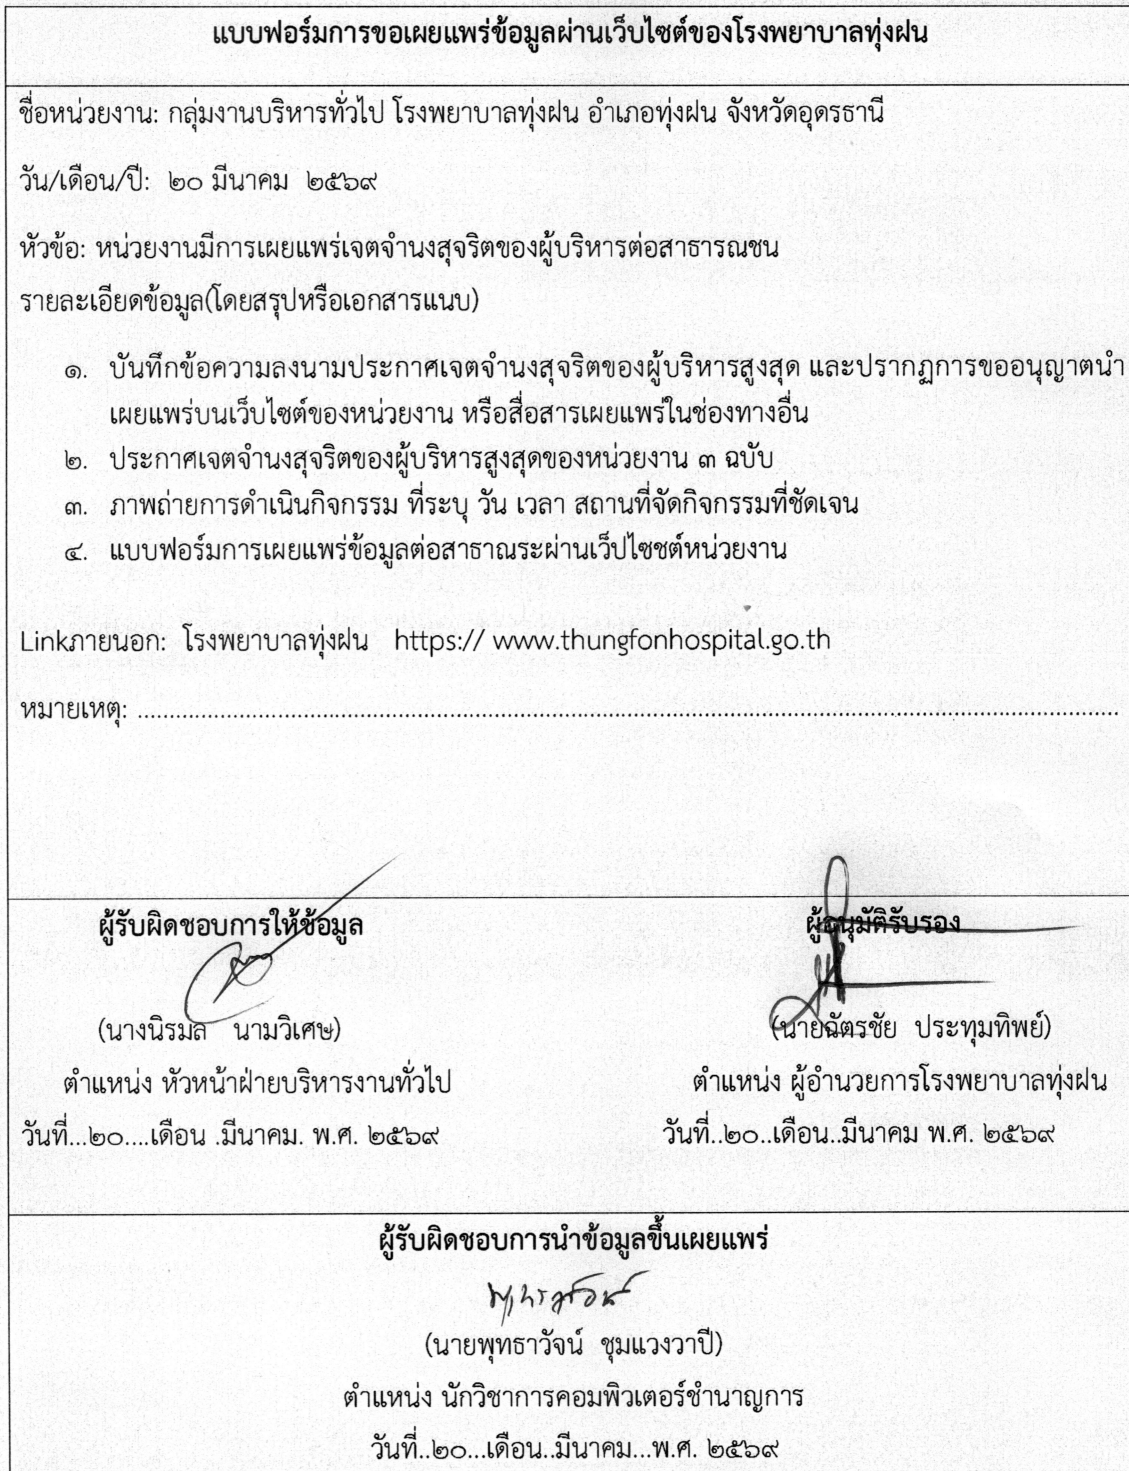 แบบฟอร์มการขอเผยแพร่ข้อมูลผ่านเว็บไซต์ของโรงพยาบาลทุ่งฝน
ชื่อหน่วยงาน: กลุ่มงานบริหารทั่วไป โรงพยาบาลทุ่งฝน อำเภอทุ่งฝน จังหวัดอุดรธานี
วัน/เดือน/ปี: ๒๐ มีนาคม ๒๕๖๙
หัวข้อ: หน่วยงานมีการเผยแพร่เจตจำนงสุจริตของผู้บริหารต่อสาธารณชน
รายละเอียดข้อมูล(โดยสรุปหรือเอกสารแนบ)
๑. บันทึกข้อความลงนามประกาศเจตจำนงสุจริตของผู้บริหารสูงสุด และปรากฏการขออนุญาตนำ
เผยแพร่บนเว็บไซต์ของหน่วยงาน หรือสื่อสารเผยแพร่ในช่องทางอื่น
๒. ประกาศเจตจำนงสุจริตของผู้บริหารสูงสุดของหน่วยงาน ๓ ฉบับ
๓. ภาพถ่ายการดำเนินกิจกรรม ที่ระบุ วัน เวลา สถานที่จัดกิจกรรมที่ชัดเจน
๔. แบบฟอร์มการเผยแพร่ข้อมูลต่อสาธาณระผ่านเว็ปไซชต์หน่วยงาน
Linkภายนอก: โรงพยาบาลทุ่งฝน https:// www.thungfonhospital.go.th
หมายเหตุ: ........................................................................................................................
ผู้รับผิดชอบการให้ข้อมูล
(นางนิรมล นามวิเศษ)
ตำแหน่ง หัวหน้าฝ่ายบริหารงานทั่วไป
วันที่...๒๐....เดือน .มีนาคม. พ.ศ. ๒๕๖๙
ผู้อนุมัติรับรอง
(นายฉัตรชัย ประทุมทิพย์)
ตำแหน่ง ผู้อำนวยการโรงพยาบาลทุ่งฝน
วันที่..๒๐..เดือน..มีนาคม พ.ศ. ๒๕๖๙
ผู้รับผิดชอบการนำข้อมูลขึ้นเผยแพร่
(นายพุทธาวัจน์ ชุมแวงวาปี)
ตำแหน่ง นักวิชาการคอมพิวเตอร์ชำนาญการ
วันที่..๒๐...เดือน..มีนาคม...พ.ศ. ๒๕๖๙